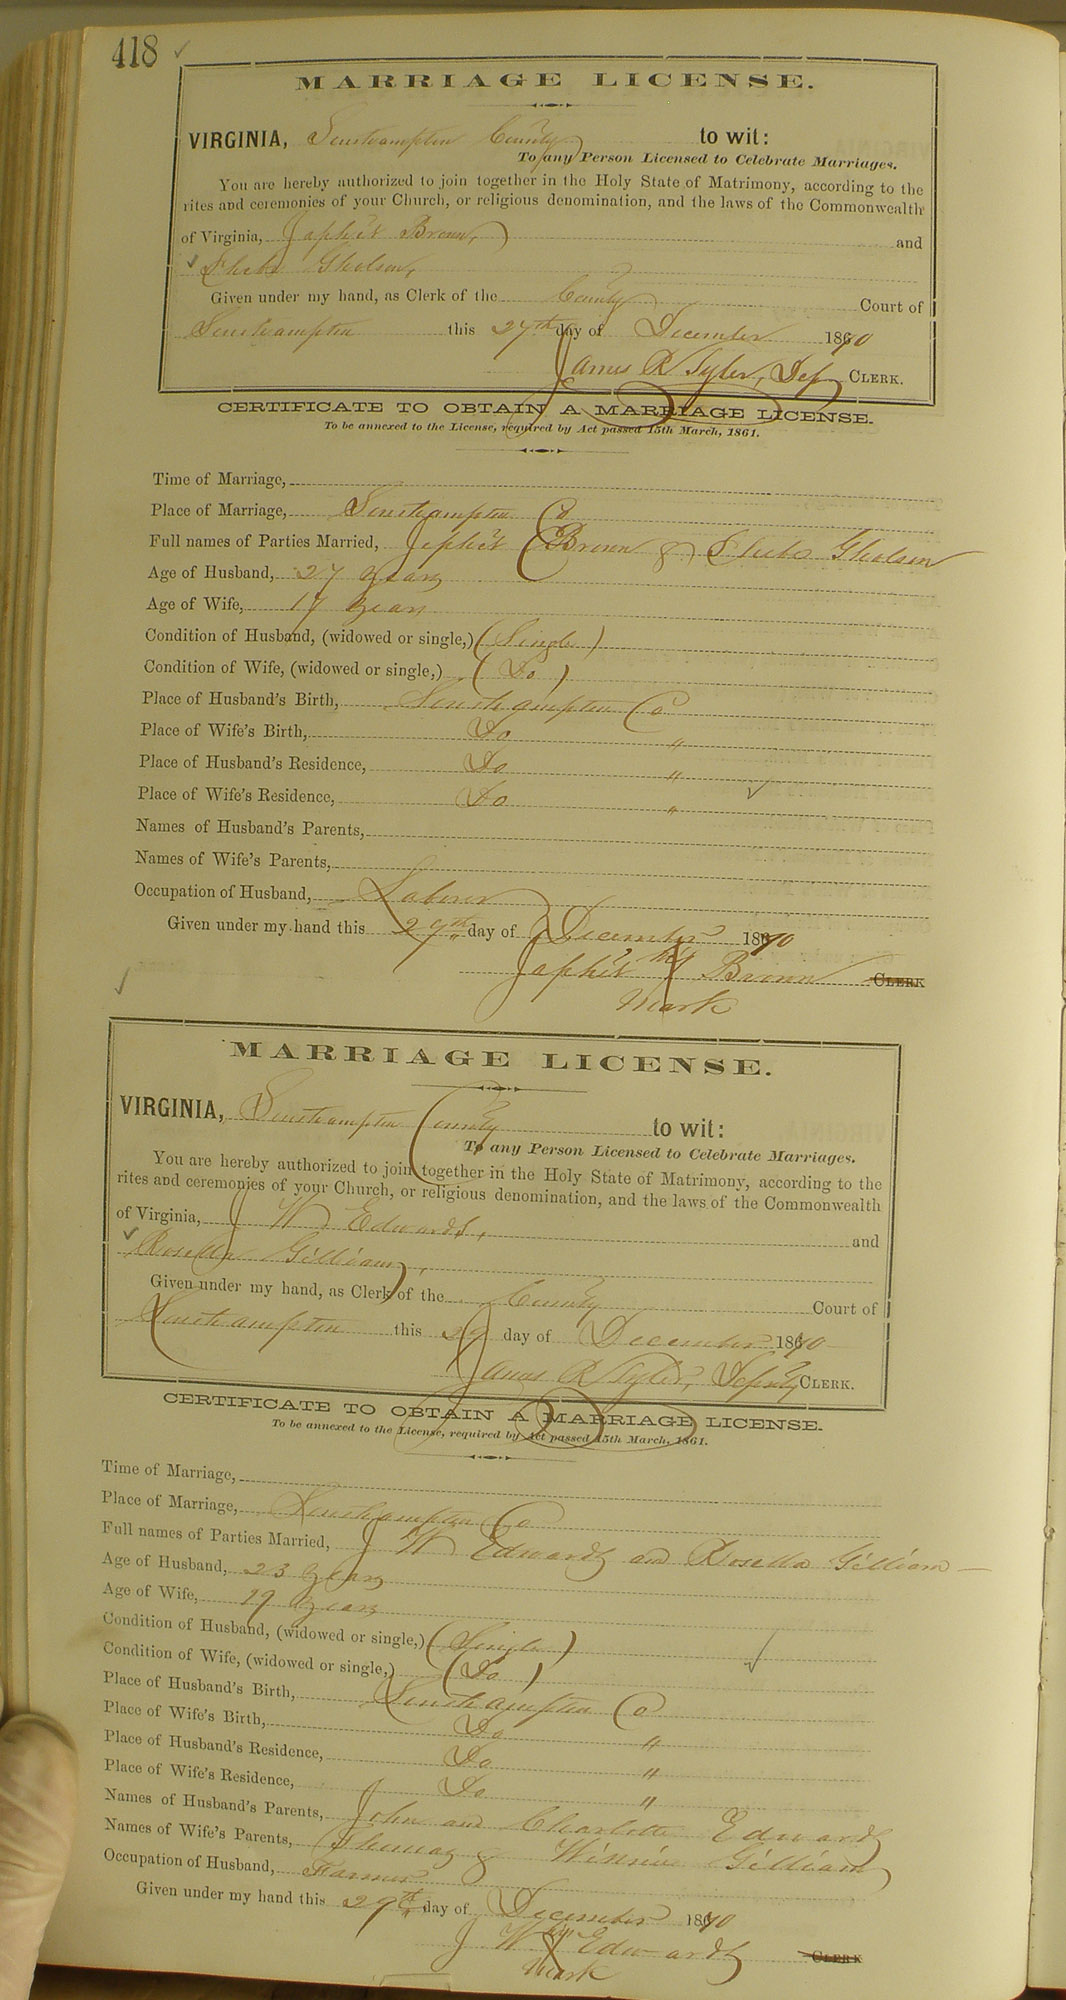 418
MARRIAGE LICENSE.
VIRGINIA, Southampton County to wit:
To any Person Licensed to Celebrate Marriages.
You are hereby authorized to join together in the Holy State of Matrimony, according to the
rites and ceremonies of your Church, or religious denomination, and the laws of the Commonwealth
of Virginia, Japhet Brown, and
Gholson,
Given under my hand, as Clerk of the County Court of
Southampton this 27th day of December 1870
James R Tyler, Dep CLERK.
CERTIFICATE TO OBTAIN A MARRIAGE LICENSE.
To be annexed to the License, required by Act passed 15th March, 1861.
Time of Marriage,
Place of Marriage, Southampton Co
Full names of Parties Married, Japhet Brown & Gholson
Age of Husband, 27 years
Age of Wife, 17 years
Condition of Husband, (widowed or single,) (Single)
Condition of Wife, (widowed or single,) (Do)
Place of Husband's Birth, Southampton Co
Place of Wife's Birth, Do "
Place of Husband's Residence, Do "
Place of Wife's Residence, Do "
Names of Husband's Parents,
Names of Wife's Parents,
Occupation of Husband, Laborer
Given under my hand this 27th day of December 1870
Japhet his X Brown CLERK
Mark
MARRIAGE LICENSE.
VIRGINIA, Southampton County to wit:
To any Person Licensed to Celebrate Marriages.
You are hereby authorized to join together in the Holy State of Matrimony, according to the
rites and ceremonies of your Church, or religious denomination, and the laws of the Commonwealth
of Virginia, J W Edwards, and
Rosella Gilliam,
Given under my hand, as Clerk of the County Court of
Southampton this 29 day of December 1870
James R Tyler, Deputy CLERK.
CERTIFICATE TO OBTAIN A MARRIAGE LICENSE.
To be annexed to the License, required by Act passed 15th March, 1861.
Time of Marriage,
Place of Marriage, Southampton Co
Full names of Parties Married, J W Edwards and Rosella Gilliam
Age of Husband, 23 years
Age of Wife, 19 years
Condition of Husband, (widowed or single,) (Single)
Condition of Wife, (widowed or single,) (Do)
Place of Husband's Birth, Southampton Co
Place of Wife's Birth, Do "
Place of Husband's Residence, Do "
Place of Wife's Residence, Do "
Names of Husband's Parents, John and Charlotte Edwards
Names of Wife's Parents, Thomas & Winnie Gilliam
Occupation of Husband, Farmer
Given under my hand this 29th day of December 1870
J W his X Edwards CLERK
Mark